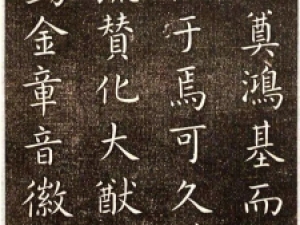 奠鴻基而
于焉可久
贊化大猷
金章音徽